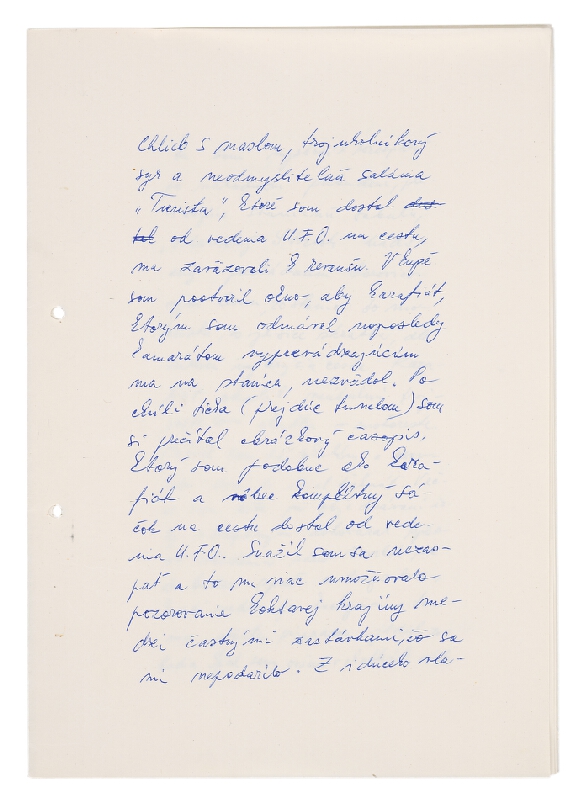 chlieb s maslom, trojuholníkový
syr a neodmysliteľná saláma
"Turista", ktoré som dostal dos
tal od vedenia U.F.O. na cestu,
ma zaväzovali k
V kupé
som pootvoril okno, aby karafiát,
ktorým som odmával naposledy
kamarátom vyprevádzajúcim
ma na stanicu, nezvädol. Po
chvíli ticha (prejdúc tunelom) som
si prečítal obrázkový časopis,
ktorý som podobne ako kara-
fiát a kompletný sá
čok na cestu dostal od vede
nia U.F.O.. Snažil som sa nezas-
pať a to mi viac umožňovalo
pozorovanie krajiny me-
dzi častými zastávkami, čo sa
mi nepodarilo. Z idúceho vla-